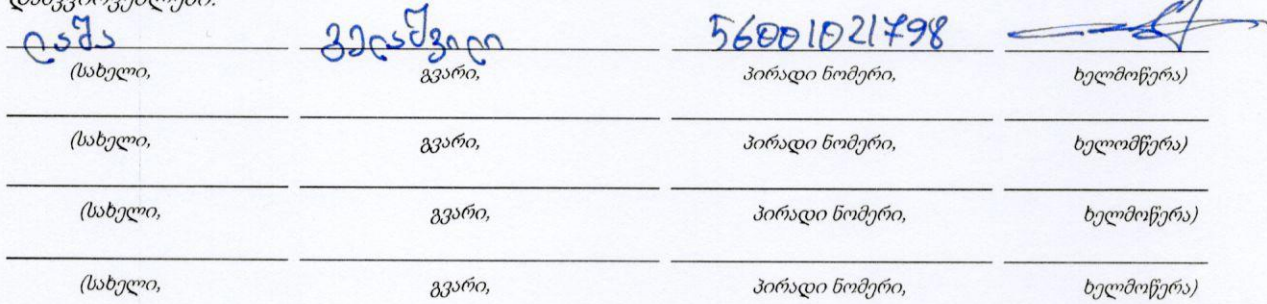 ლაშა გელაშვილი 56001021798
(სახელი, გვარი, პირადი ნომერი, ხელმოწერა)
(სახელი, გვარი, პირადი ნომერი, ხელომწერა)
(სახელი, გვარი, პირადი ნომერი, ხელმოწერა)
(სახელი, გვარი, პირადი ნომერი, ხელმოწერა)